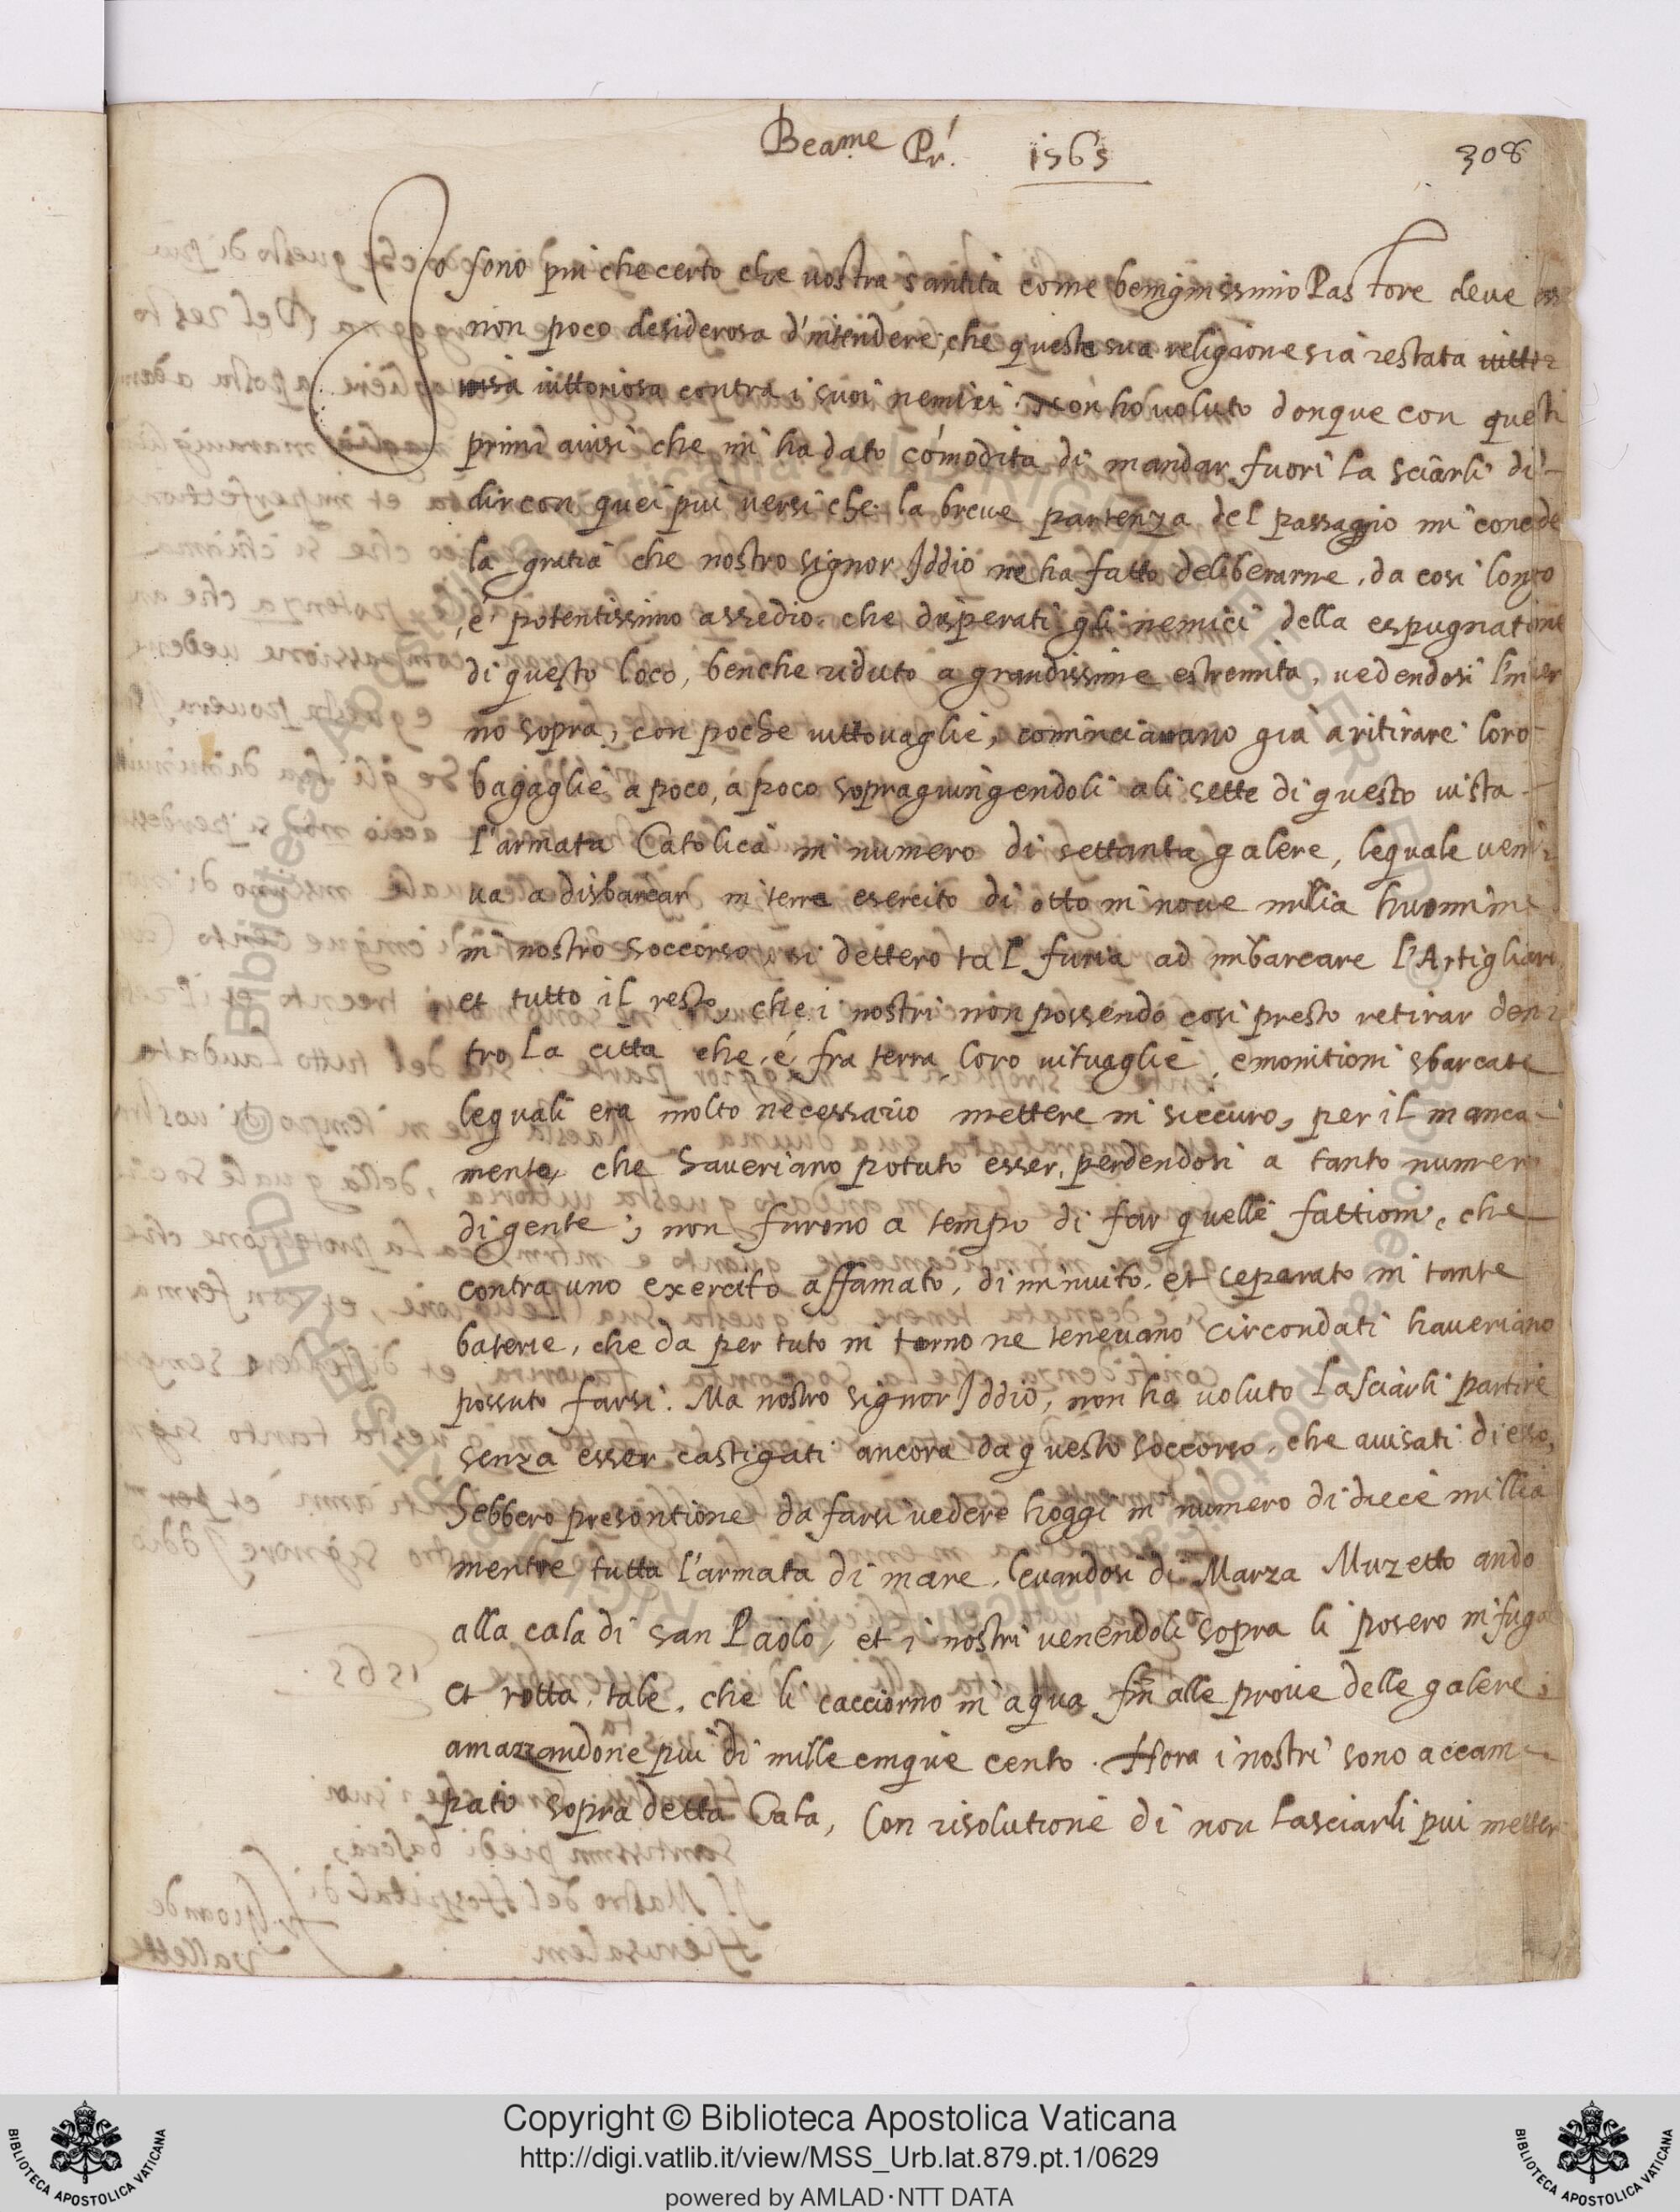 Bea.me Pr.' 1565
308
Io sono piu che certo che vostra santita come benignissimo Pastore deve
non poco desiderosa d'intendere, che questa sua religione sia restata vitto
vittoriosa contra i suoi nemici. Non ho voluto donque con questi
primi avisi che mi ha dato comodita di mandar fuori lasciarli di
dir con quei piu versi che la breve partenza del passagio mi concede
la gratia che nostro signor Iddio ne ha fatto deliberarne, da cosi longo
, é potentissimo assedio. che disperati gli nemici della espugnatione
di questo loco, benche riduto a grandissime estremita, vedendosi l'inver
no sopra, con poche vittovaglie, cominciavano già à ritirare loro
bagaglie à poco, à poco sopragiungendoli ali sette di questo vista
l'armata Catolica in numero di settanta galere, lequale veni
va a disbarcar in terra esercito di otto in nove milia huomini
in nostro soccorso, si dettero tal furia ad imbarcare l'Artigliari
et tutto il resto, che i nostri non possendo cosi presto retirar den
tro la citta che, é, fra terra loro vituaglie, e monitioni sbarcate
lequali era molto necessario mettere in siccuro, per il manca
mento, che haveriano potuto esser, perdendosi a tanto numero
di gente; non furono a tempo di far quelle fattioni, che
contra uno exercito affamato, diminuito, et separato in tante
baterie, che da per tuto in torno ne tenevano circondati haveriano
possuto farsi. Ma nostro signor Iddio, non ha voluto lasciarli partire
senza esser castigati ancora da questo soccorso, che avisati di eso,
hebbero presontione da farsi vedere hoggi in numero di diece millia
mentre tutta l'armata di mare, levandosi di Marza Muzetto ando
alla cala di san Paolo, et i nostri venendoli sopra li posero in fuga
et rotta, tale, che li cacciorno in aqua fin alle prove delle galere,
amazzandone piu di mille cinque cento. Hora i nostri sono accam
pato sopra detta Cala, Con risolutione di non lasciarli piu metter
Copyright © Biblioteca Apostolica Vaticana
http://digi.vatlib.it/view/MSS_Urb.lat.879.pt.1/0629
powered by AMLAD·NTT DATA
BIBLIOTECA APOSTOLICA VATICANA
BIBLIOTECA APOSTOLICA VATICANA